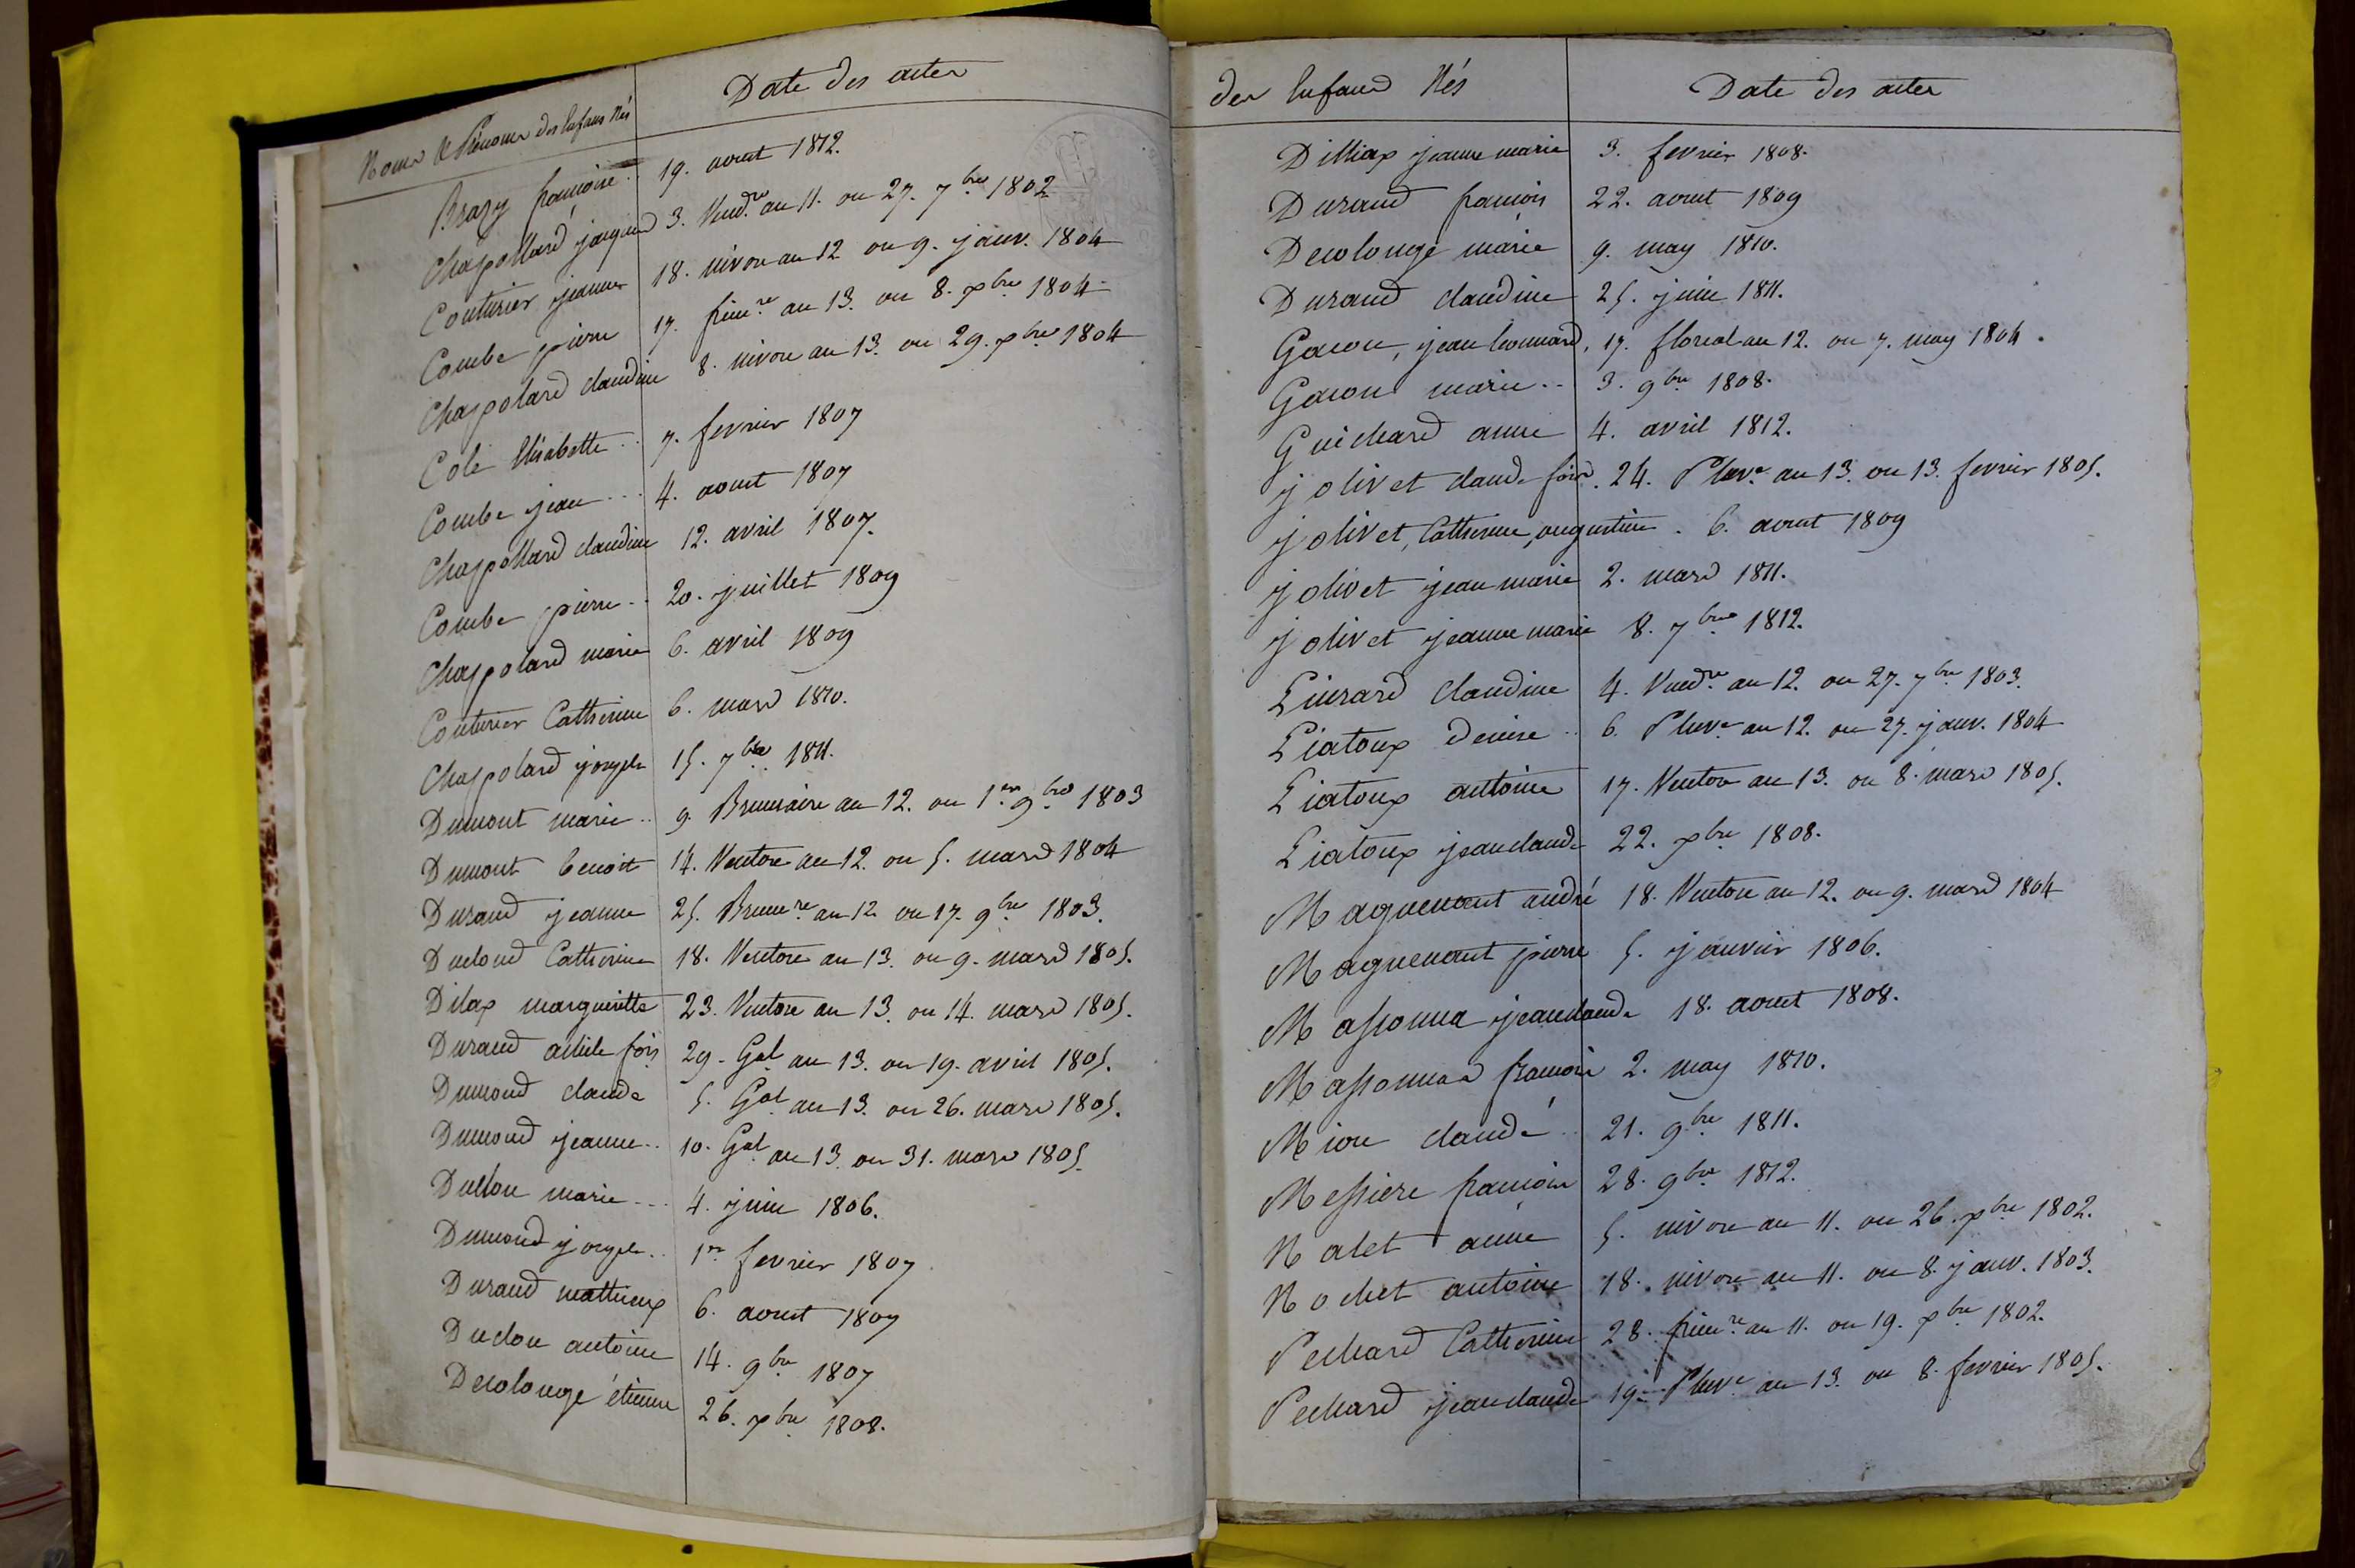 Noms & Prénoms des Enfans Nés Date des actes
Brazy françoise .. 19. aout 1812.
Chapollard jacques 3. Vend.re an 11. ou 27. 7bre 1802
Couturier jeanne 18. nivose an 12 ou 9. janv. 1804
Combe pierre 17. frim.re an 13. ou 8. xbre 1804
Chappolard claudine 8. nivose an 13. ou 29. xbre 1804
Cole Elisabette .. 7. fevrier 1807
Combe jean ... 4. aout 1807
Chappollard claudine 12. avril 1807.
Combe pierre .. 20. juillet 1809
Chappolard marie 6. avril 1809
Couturier Catherine 6. mars 1810.
Chappolard joseph 15. 7bre 1811.
Dumont marie .. 9. Brumaire an 12. ou 1er 9bre 1803
Dumont benoit 14. Ventose an 12. ou 5. mars 1804
Durand jeanne 25. Brum.re an 12 ou 17. 9bre 1803.
Ducloud Catherine 18. Ventose an 13. ou 9. mars 1805.
Dilax margueritte 23. Ventose an 13. ou 14. mars 1805.
Durand fois 29. Gal an 13. ou 19. avril 1805.
Dumond claude 5. Gal an 13. ou 26. mars 1805.
Dumond jeanne .. 10. Gal an 13. ou 31. mars 1805.
Duclou marie ... 4. juin 1806.
Dumond joseph .. 1er fevrier 1807
Durand mattieux 6. aout 1807
Duclou antoine 14. 9bre 1807
Decolonge étienne 26. xbre 1808.
des Enfans Nés Date des actes
Dilliax jeanne marie 3. fevrier 1808.
Durand francois 22. aout 1809
Decolonge marie 9. may 1810.
Durand claudine 25. juin 1811.
Gacon, jean leonnard, 17. floreal an 12. ou 7. may 1804.
Gacon marie .. 3. 9bre 1808.
Guichard anne 4. avril 1812.
jolivet claude fois. 24. Pluv.e an 13. ou 13. fevrier 1805.
jolivet, Catherine, augustine. 6. aout 1809
jolivet jean marie 2. mars 1811.
jolivet jeanne marie 8. 7bre 1812.
Livrard claudine 4. Vend.re an 12. ou 27. 7bre 1803.
Liatoux denise .. 6. Pluv.e an 12. ou 27. janv. 1804
Liatoux antoine 17. Ventose an 13. ou 8. mars 1805.
Liatoux jean claude 22. xbre 1808.
Maguenant andré 18. Ventose an 12. ou 9. mars 1804
Maguenant pierre 5. janvier 1806.
Massonna jean claude 18. aout 1808.
Massonnas francois 2. may 1810.
Mion claude .. 21. 9bre 1811.
Messiere francois 28. 9bre 1812.
Nalet anne 5. nivose an 11. ou 26. xbre 1802.
Nochet antoine 18. nivose an 11. ou 8. janv. 1803.
Pechard Catherine 28. frim.re an 11. ou 19. xbre 1802.
Pechard jean claude 19. Pluv.e an 13. ou 8. fevrier 1805.